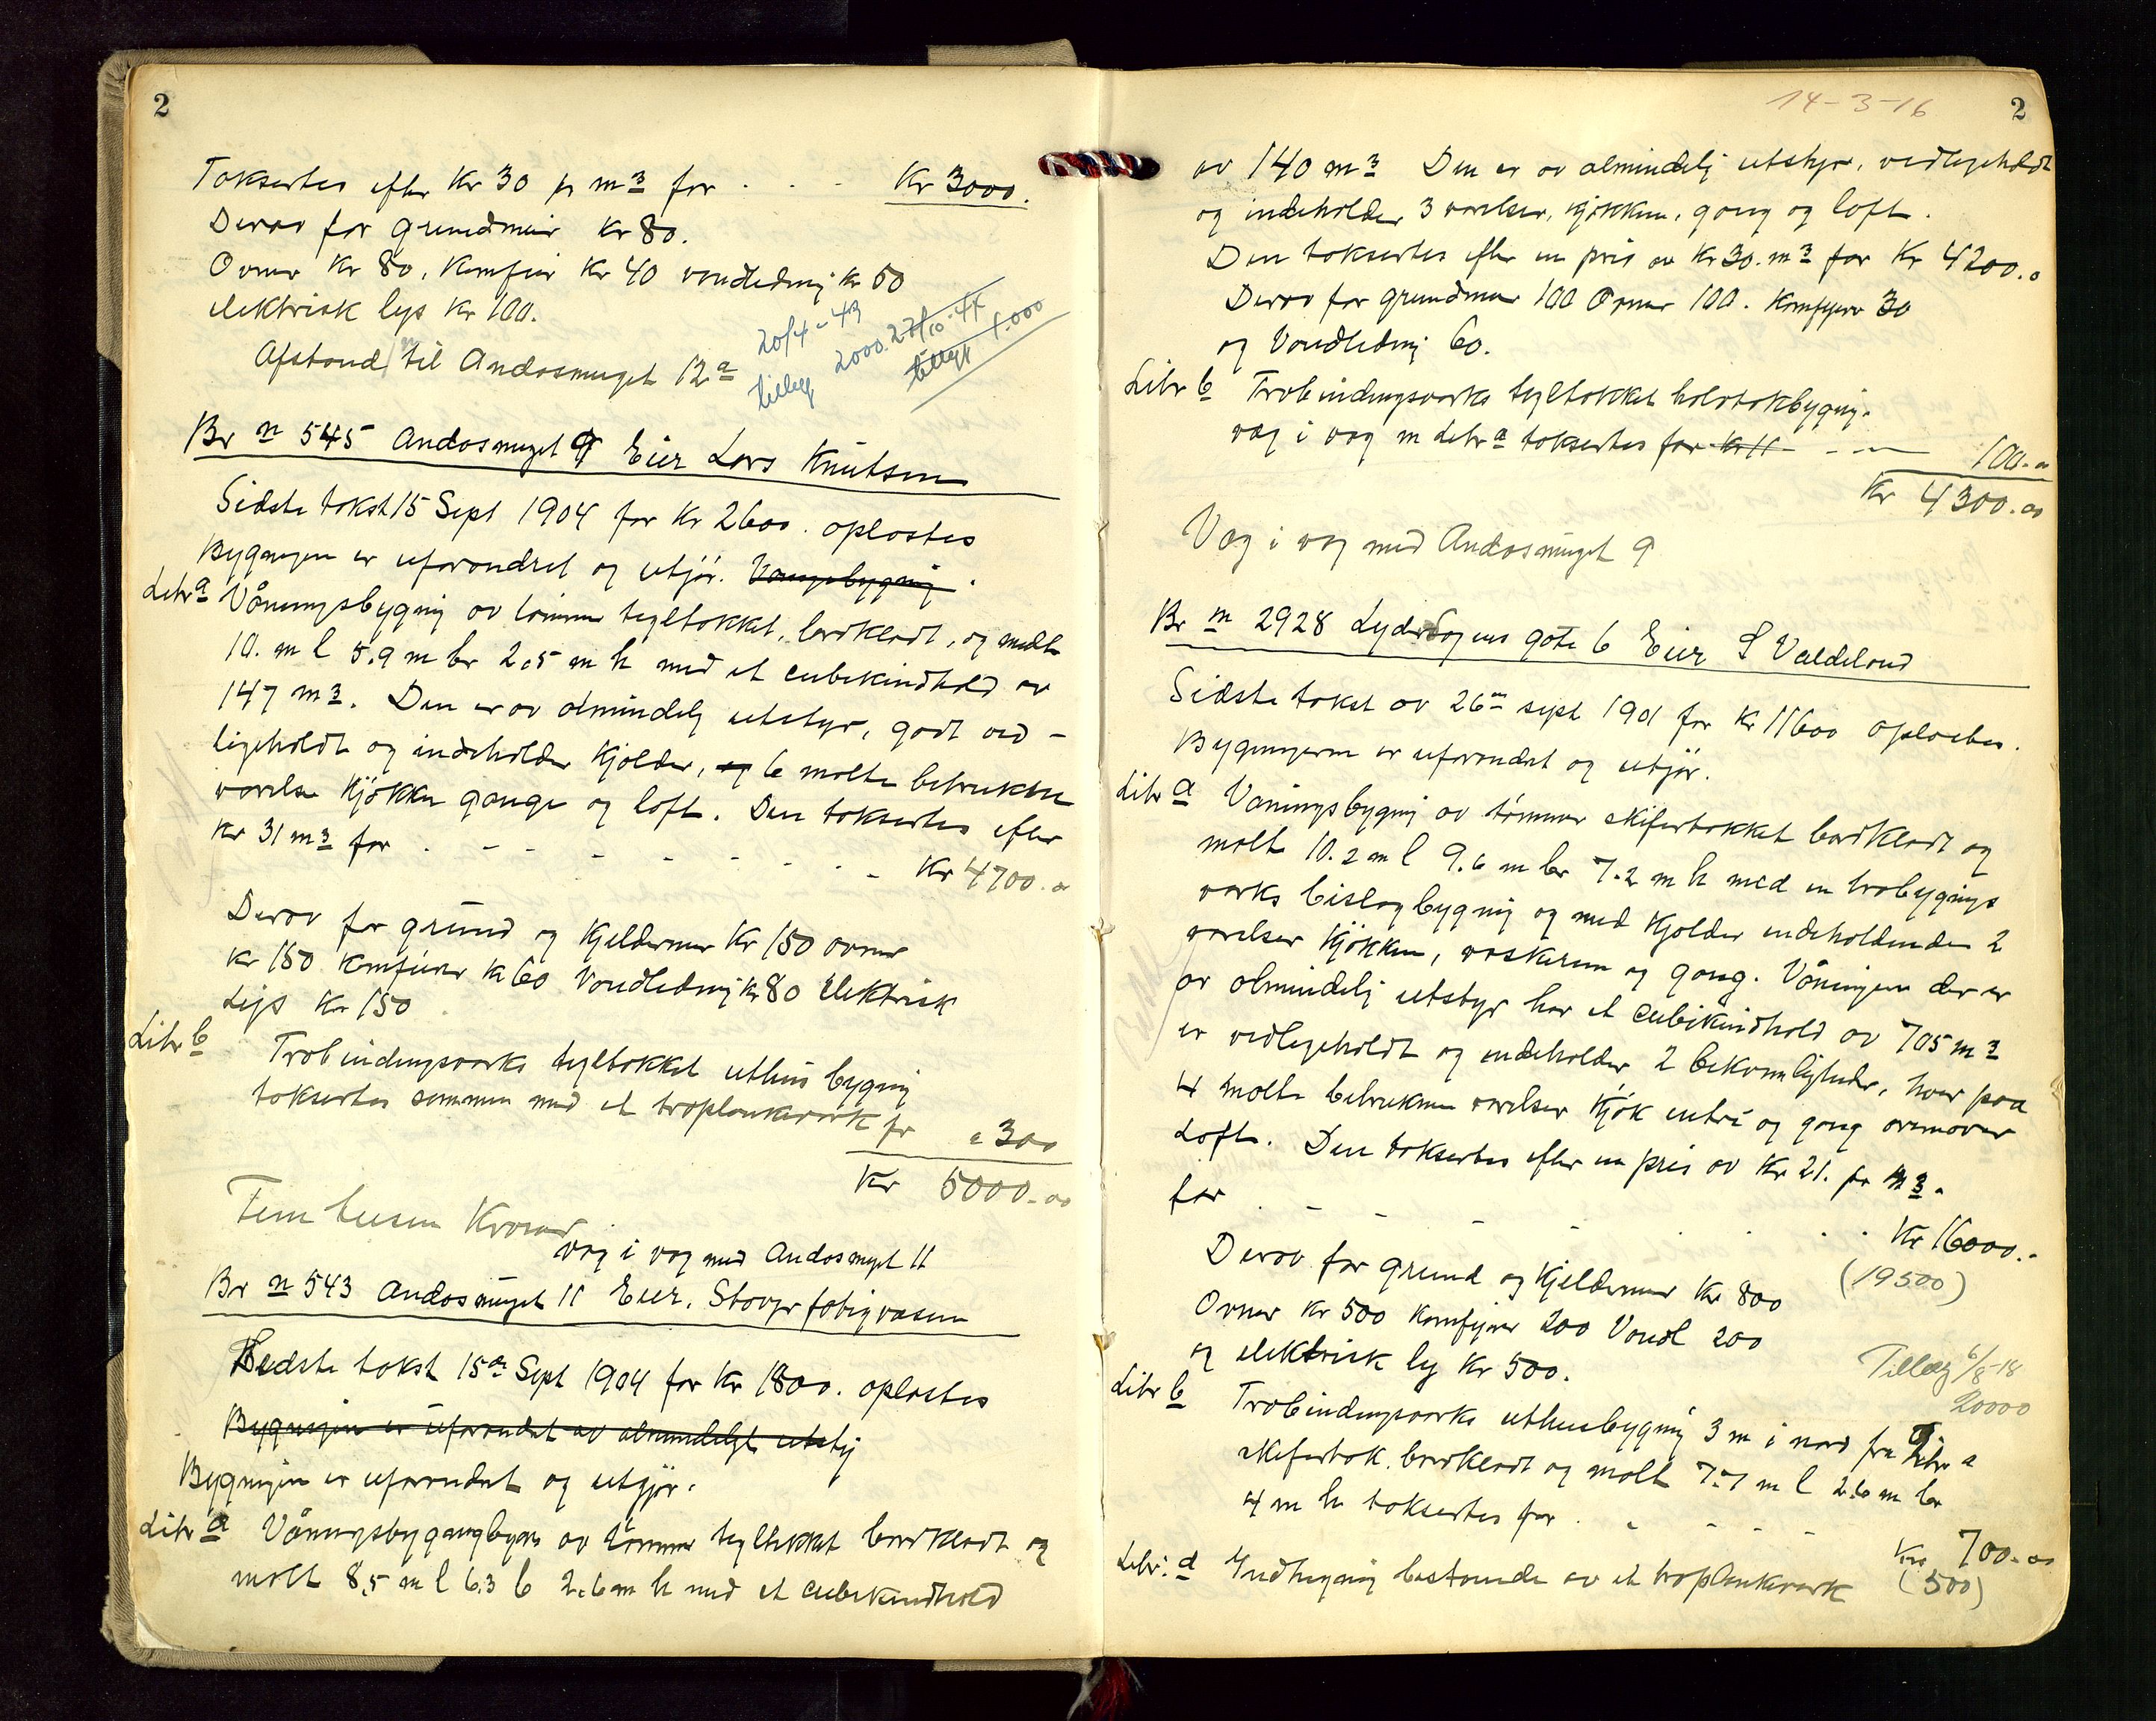 2
Taksertes efter Kr 30 pr m3 for . . . Kr 3000.
Derav for grundmur Kr 80.
Ovner Kr 80, Komfur Kr 40 vandledning Kr 50
elektrisk lys Kr 100.
Afstand til Andasmuget 12a
20/4-43
tillegg 2000.
27/10-44
tillegg 1.000
Br n 545 Andasmuget 9 Eier Lars Knutsen
Sidste takst 15 Sept 1904 for Kr 2600. oplæstes
Bygningen er uforandret og utjör.
Litr a Våningsbygning av tømmer tegltækket, bordklædt, og målt
10. m l 5.9 m br 2.5 m h med et cubikindhold av
147 m3. Den er av almindelig utstyr, godt ved-
ligeholdt og indeholder Kjælder, og 6 malte betrukne
værelser Kjøkken gange og loft. Den taksertes efter
Kr 31 m3 for . - - - - - - Kr 4700.00
Derav for grund og Kjeldermur Kr 150 ovner
Kr 150 Komfurer Kr 60 Vandledning Kr 80 Elektrisk
Lys Kr 150
Litr b Træbindingsværks tegltækket uthus bygning
taksertes sammen med et træplankeværk for " 300
Kr 5000.00
Fem tusen Kroner
væg i væg med Andasmuget 11
Br n 543 Andasmuget 11 Eier, Stavgr fattigvæsen
Sidste takst 15de Sept 1904 for Kr 1800. oplæstes
Bygningen er uforandret av almindeligt utsty
Bygningen er uforandret og utgjør.
Litr a Våningsbygning av tømmer tegltækket bordklædt og
målt 8,5 m l 6.3 b 2.6 m h med et cubikindhold
14-3-16
2
av 140 m3 Den er av almindelig utstyr, vedligeholdt
og indeholder 3 værelser, kjøkken, gang og loft.
Den taksertes efter en pris av Kr 30. m3 for Kr 4200.0
Derav for grundmur 100 Ovner 100. Komfyrer 30
og Vandledning 60.
Litr b Træbindingsværks tegltækket halvtakbygning.
væg i væg m Litr a taksertes for Kr 11 - - - 100.00
Kr 4300.00
Væg i væg med Andasmuget 9
Br n 2928 Lyder Sagens gate 6 Eier S Valdeland
Sidste takst av 26de sept 1901 for Kr 11600 oplæstes.
Bygningerne er uforandret og utjør.
Litr a Våningsbygning av tømmer skifertækket bordklædt og
målt 10.2 m l 9.6 m br 7.2 m h med en træbygnings
værks bislagbygning og med Kjælder indeholdende 2
værelser Kjøkken, vaskerum og gang. Våningen der er
av almindelig utstyr har et cubikindhold av 705 m3
er vedligeholdt og indeholder 2 bekvemligheder, hver paa
4 malte betrukne værelser Kjøk entré og gang ovenover
Loft. Den taksertes efter en pris av Kr 21. pr m3.
for . - - - - . . . Kr 16000.-
(19500)
Derav for grund og Kjeldermur Kr 800
Ovner Kr 500 Komfyrer 200 Vandl 200
og elektrisk ly Kr 500.
Tillæg 6/8-18
20000
Litr b Træbindingsværks uthusbygning 3 m i nord fra Litr a
skifertæk. bordklædt og målt 7.7 m l 2.6 m br
4 m h taksertes for . . - - - Kr 700.00
(500)
Litr. d Indhegning bestaaende av et træplankeværk